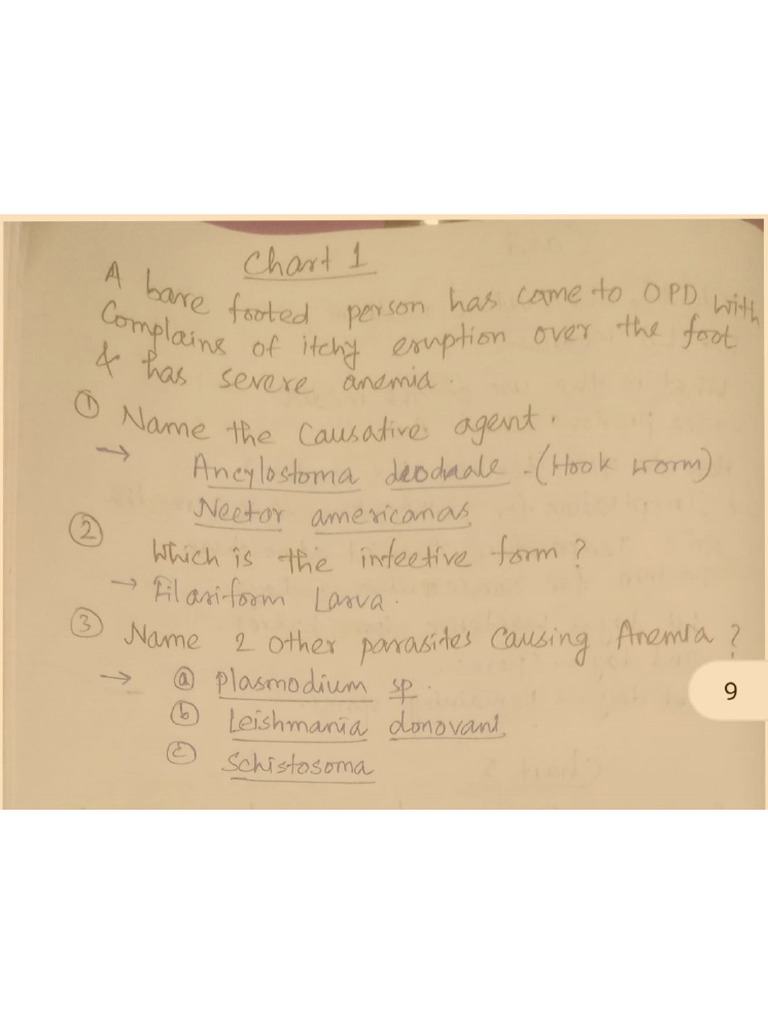 Chart 1
A bare footed person has come to OPD with
Complains of itchy eruption over the foot
& has severe anemia.
① Name the causative agent.
→ Ancylostoma deodnale - (Hook worm)
Nector americanas
② Which is the infective form?
→ Filariform Larva.
③ Name 2 other parasites causing Anemia?
→ ⓐ Plasmodium sp.
ⓑ Leishmania donovani
ⓒ Schistosoma
9